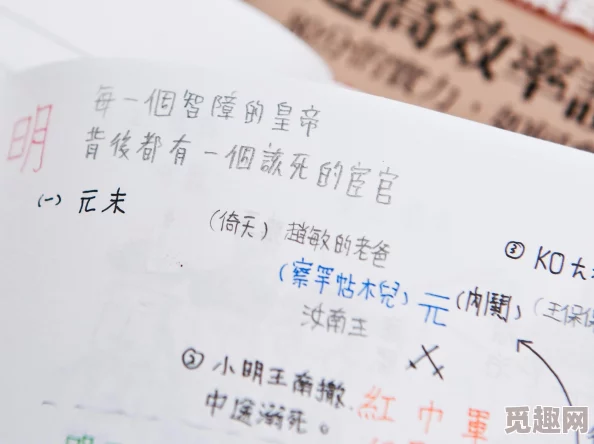 超高效率
明
每一個智障的皇帝
背後都有一個該死的宦官
(一) 元末
(倚天) 趙敏的老爸
③ KO大
(察罕帖木兒) 元 (內鬨) (王保保
汝南王
② 小明王南撤
中途溺死。
紅巾軍
觅趣网